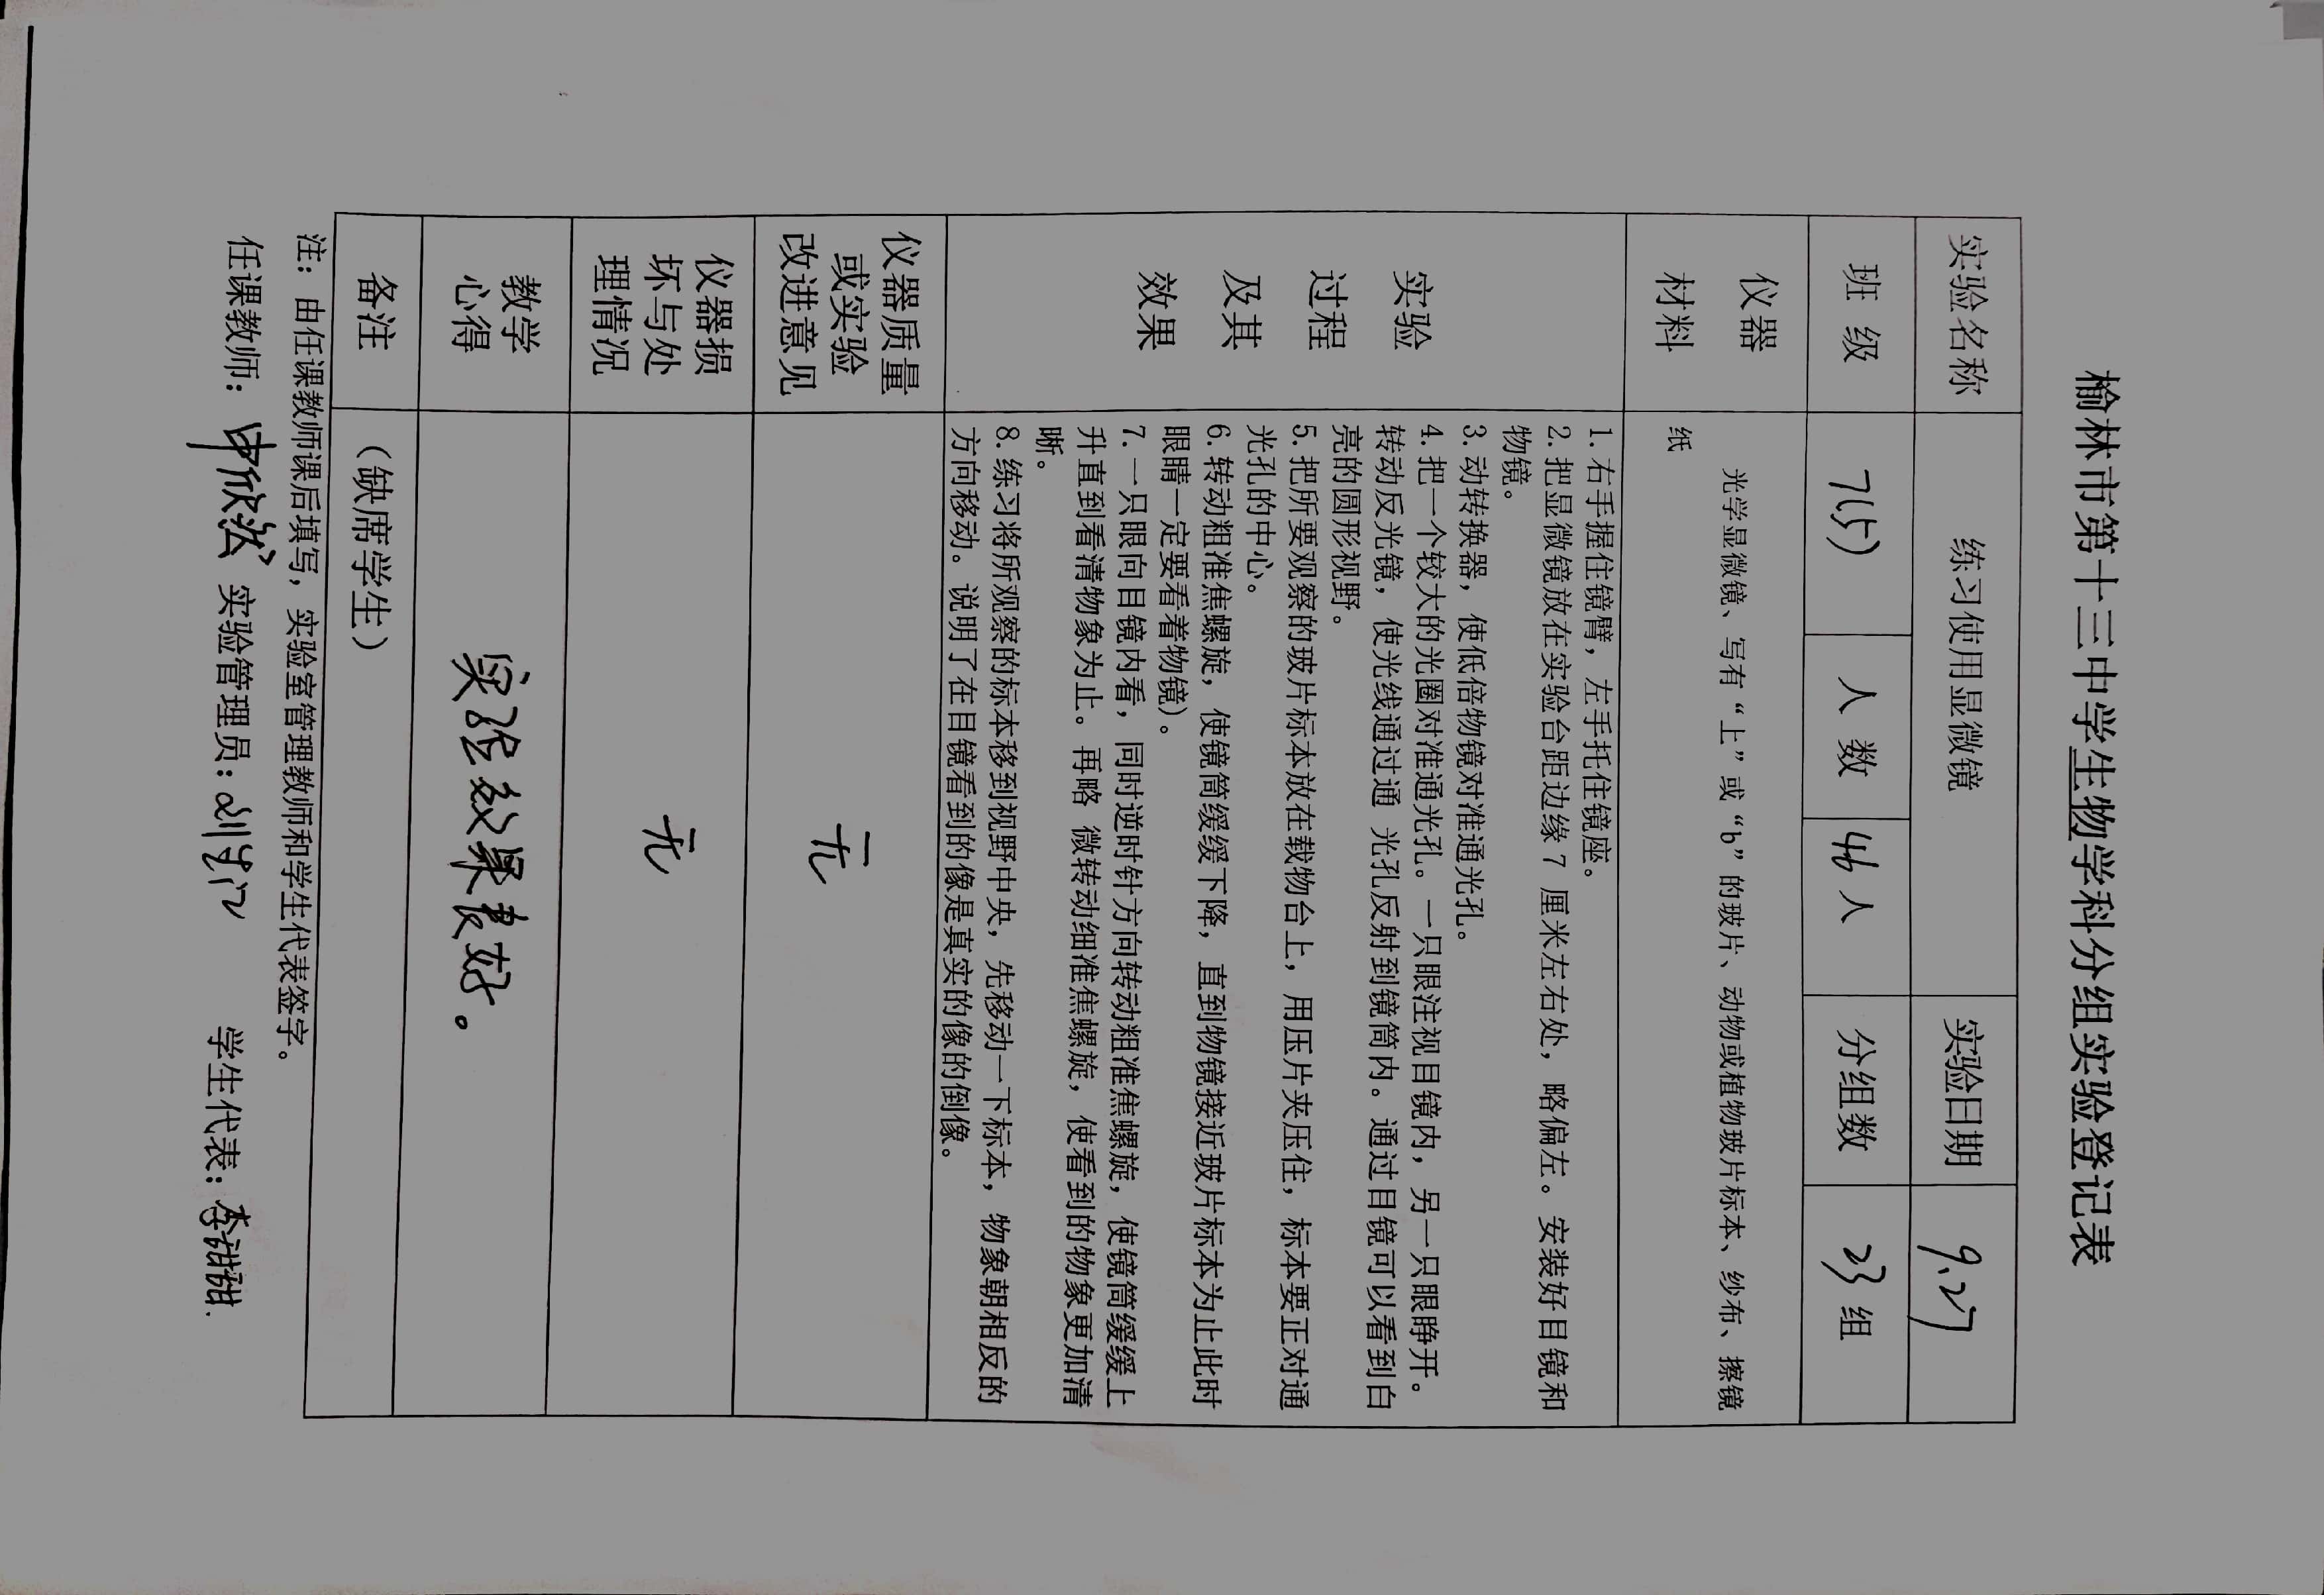 榆林市第十三中学生物学科分组实验登记表
实验名称 练习使用显微镜 实验日期 9.27
班 级 7(5) 人 数 46人 分组数 23组
仪器
材料
光学显微镜、写有“上”或“b”的玻片、动物或植物玻片标本、纱布、擦镜
纸
实验
过程
及其
效果
1.右手握住镜臂，左手托住镜座。
2.把显微镜放在实验台距边缘7 厘米左右处，略偏左。安装好目镜和
物镜。
3.动转换器，使低倍物镜对准通光孔。
4.把一个较大的光圈对准通光孔。一只眼注视目镜内，另一只眼睁开。
转动反光镜，使光线通过通 光孔反射到镜筒内。通过目镜可以看到白
亮的圆形视野。
5.把所要观察的玻片标本放在载物台上，用压片夹压住，标本要正对通
光孔的中心。
6.转动粗准准焦螺旋，使镜筒缓缓下降，直到物镜接近玻片标本为止此时
眼睛一定要看着物镜）。
7.一只眼向目镜内看，同时逆时针方向转动粗准焦螺旋，使镜筒缓缓上
升直到看清物象为止。再略 微转动细准焦螺旋，使看到的物象更加清
晰。
8.练习将所观察的标本移到视野中央，先移动一下标本，物象朝相反的
方向移动。说明了在目镜看到的像是真实的像的倒像。
仪器质量
或实验
改进意见
无
仪器损
坏与处
理情况
无
教学
心得
实验效果良好。
备注 （缺席学生）
注：由任课教师课后填写，实验室管理教师和学生代表签字。
任课教师：申欣 实验管理员：刘 学生代表：李甜甜.